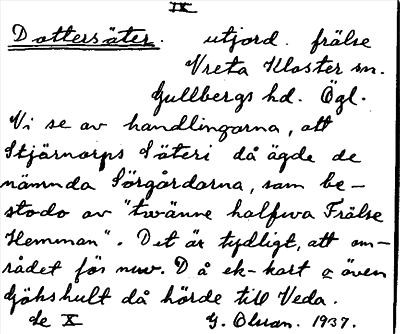 IX
Dottersäter. utjord. frälse
Vreta Kloster sn.
Gullbergs hd. Ögl.
Vi se av handlingarna, att
Stjärnorps Säteri då ägde de
nämnda Sörgårdarna, som be-
stodo av "twänne halfwa Frälse
Hemman". Det är tydligt, att om-
rådet för nuv. Då ek-kart o även
Gökshult då hörde till Veda.
de X G. Olsson. 1937.